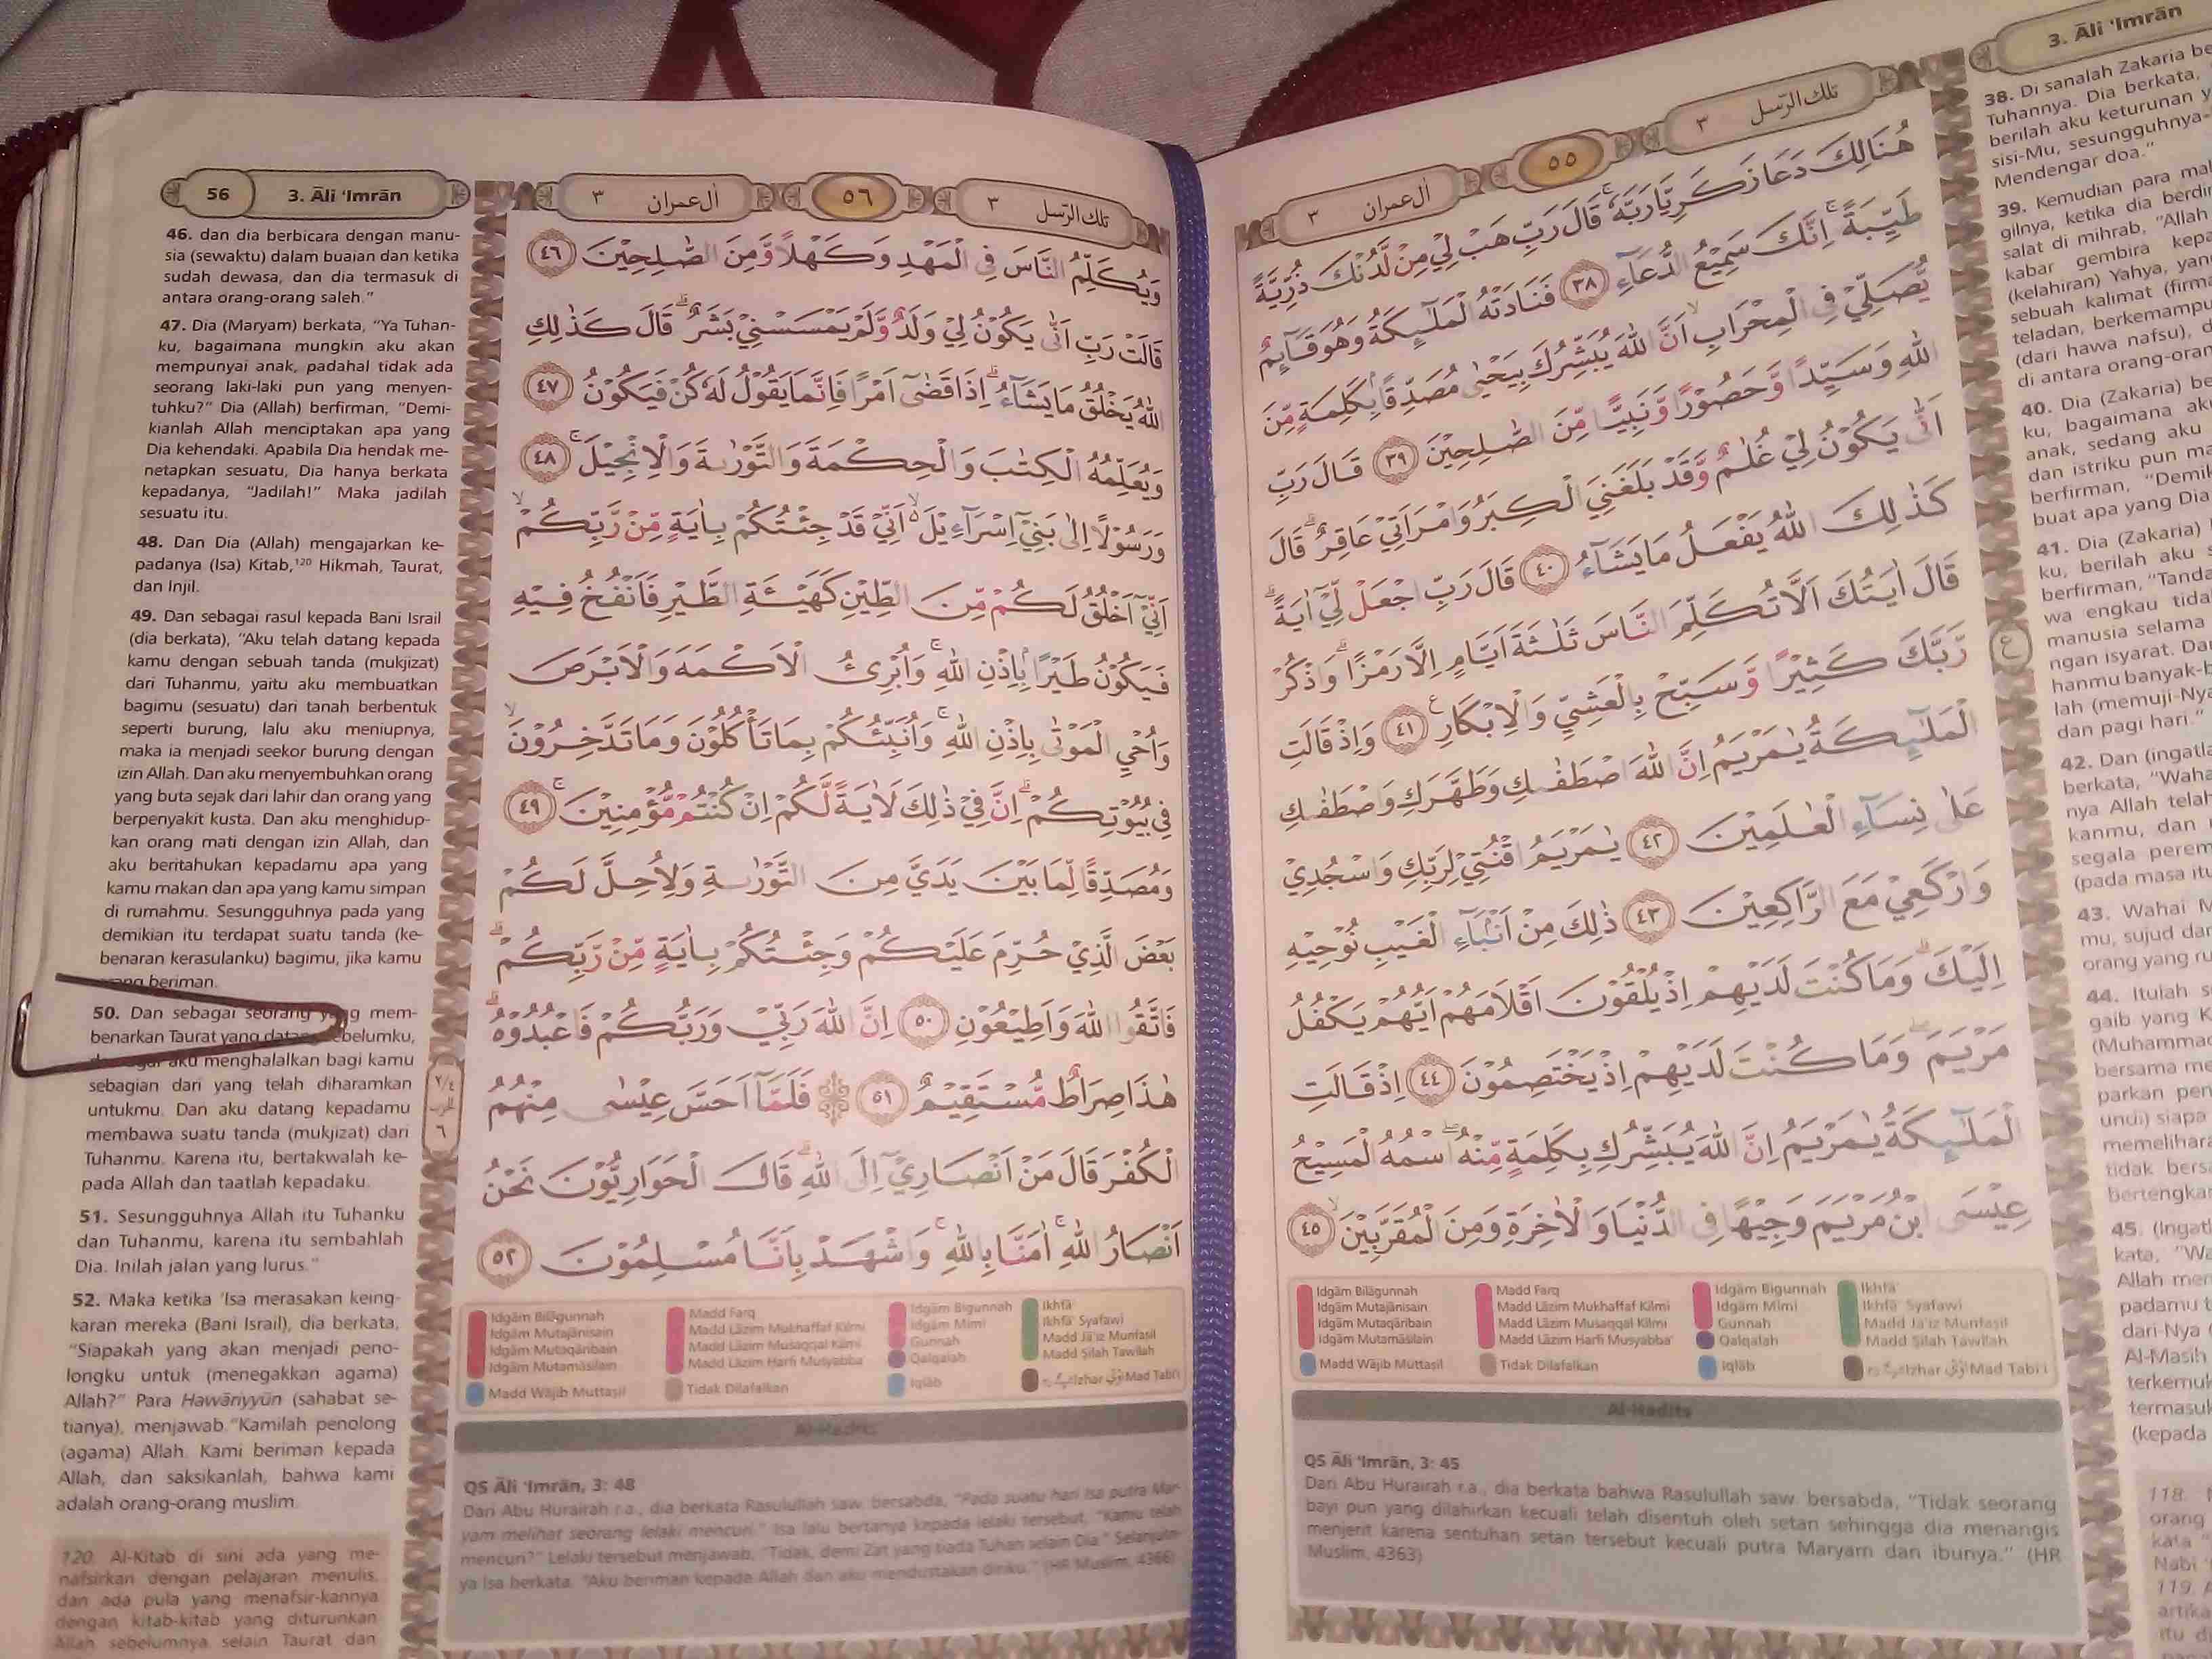 تلك الرسل ٣
٥٥
اٰل عمران ٣
هُنَالِكَ دَعَا زَكَرِيَّا رَبَّهٗ ۚ قَالَ رَبِّ هَبْ لِيْ مِنْ لَّدُنْكَ ذُرِّيَّةً
طَيِّبَةً ۚ اِنَّكَ سَمِيْعُ الدُّعَاۤءِ ٣٨ فَنَادَتْهُ الْمَلٰۤىِٕكَةُ وَهُوَ قَاۤىِٕمٌ
يُّصَلِّيْ فِى الْمِحْرَابِۙ اَنَّ اللّٰهَ يُبَشِّرُكَ بِيَحْيٰى مُصَدِّقًاۢ بِكَلِمَةٍ مِّنَ
اللّٰهِ وَسَيِّدًا وَّحَصُوْرًا وَّنَبِيًّا مِّنَ الصّٰلِحِيْنَ ٣٩ قَالَ رَبِّ
اَنّٰى يَكُوْنُ لِيْ غُلٰمٌ وَّقَدْ بَلَغَنِيَ الْكِبَرُ وَامْرَاَتِيْ عَاقِرٌ ۗ قَالَ
كَذٰلِكَ اللّٰهُ يَفْعَلُ مَا يَشَاۤءُ ٤٠ قَالَ رَبِّ اجْعَلْ لِّيْٓ اٰيَةً ۗ
قَالَ اٰيَتُكَ اَلَّا تُكَلِّمَ النَّاسَ ثَلٰثَةَ اَيَّامٍ اِلَّا رَمْزًا ۗ وَاذْكُرْ
رَّبَّكَ كَثِيْرًا وَّسَبِّحْ بِالْعَشِيِّ وَالْاِبْكَارِ ࣖ ٤١ وَاِذْ قَالَتِ
الْمَلٰۤىِٕكَةُ يٰمَرْيَمُ اِنَّ اللّٰهَ اصْطَفٰىكِ وَطَهَّرَكِ وَاصْطَفٰىكِ
عَلٰى نِسَاۤءِ الْعٰلَمِيْنَ ٤٢ يٰمَرْيَمُ اقْنُتِيْ لِرَبِّكِ وَاسْجُدِيْ
وَارْكَعِيْ مَعَ الرَّاكِعِيْنَ ٤٣ ذٰلِكَ مِنْ اَنْۢبَاۤءِ الْغَيْبِ نُوْحِيْهِ
اِلَيْكَ ۗ وَمَا كُنْتَ لَدَيْهِمْ اِذْ يُلْقُوْنَ اَقْلَامَهُمْ اَيُّهُمْ يَكْفُلُ
مَرْيَمَ ۖ وَمَا كُنْتَ لَدَيْهِمْ اِذْ يَخْتَصِمُوْنَ ٤٤ اِذْ قَالَتِ
الْمَلٰۤىِٕكَةُ يٰمَرْيَمُ اِنَّ اللّٰهَ يُبَشِّرُكِ بِكَلِمَةٍ مِّنْهُ ۖ اسْمُهُ الْمَسِيْحُ
عِيْسَى ابْنُ مَرْيَمَ وَجِيْهًا فِى الدُّنْيَا وَالْاٰخِرَةِ وَمِنَ الْمُقَرَّبِيْنَۙ ٤٥
ع
Idgām Bilāgunnah
Idgām Mutajānisain
Idgām Mutaqāribain
Idgām Mutamāśilain
Madd Wājib Muttaṣil
Madd Farq
Madd Lāzim Mukhaffaf Kilmi
Madd Lāzim Musaqqal Kilmi
Madd Lāzim Harfi Musyabba'
Tidak Dilafalkan
Idgām Bigunnah
Idgām Mimi
Gunnah
Qalqalah
Iqlāb
Ikhfā'
Ikhfā' Syafawi
Madd Jā'iz Munfasil
Madd Ṣilah Ṭawīlah
Izhar Mad Tabi'i
Al-Hadits
QS Āli ‘Imrān, 3: 45
Dari Abu Hurairah r.a., dia berkata bahwa Rasulullah saw. bersabda, “Tidak seorang
bayi pun yang dilahirkan kecuali telah disentuh oleh setan sehingga dia menangis
menjerit karena sentuhan setan tersebut kecuali putra Maryam dan ibunya.” (HR
Muslim, 4363)
3. Āli ‘Imrān
38. Di sanalah Zakaria be
Tuhannya. Dia berkata,
berilah aku keturunan y
sisi-Mu, sesungguhnya
Mendengar doa.”
39. Kemudian para mal
gilnya, ketika dia berdir
salat di mihrab, “Allah
kabar gembira kepa
(kelahiran) Yahya, yan
sebuah kalimat (firma
teladan, berkemampu
(dari hawa nafsu), d
di antara orang-oran
40. Dia (Zakaria) be
ku, bagaimana aku
anak, sedang aku
dan istriku pun ma
berfirman, “Demik
buat apa yang Dia
41. Dia (Zakaria)
ku, berilah aku s
berfirman, “Tanda
wa engkau tida
manusia selama
ngan isyarat. Dan
hanmu banyak-b
lah (memuji-Nya
dan pagi hari.”
42. Dan (ingatla
berkata, “Waha
nya Allah telah
kanmu, dan
segala perem
(pada masa itu
43. Wahai M
mu, sujud dan
orang yang ru
44. Itulah s
gaib yang K
(Muhammad
bersama me
parkan pen
undi) siapa
memelihara
tidak bers
bertengkar
45. (Ingat
kata, “Wa
Allah men
padamu t
dari-Nya (
Al-Masih
terkemuk
termasuk
(kepada
118.
orang
kata
Nabi
119.
artika
itu
تلك الرسل ٣
٥٦
اٰل عمران ٣
وَيُكَلِّمُ النَّاسَ فِى الْمَهْدِ وَكَهْلًا وَّمِنَ الصّٰلِحِيْنَ ٤٦
قَالَتْ رَبِّ اَنّٰى يَكُوْنُ لِيْ وَلَدٌ وَّلَمْ يَمْسَسْنِيْ بَشَرٌ ۗ قَالَ كَذٰلِكِ
اللّٰهُ يَخْلُقُ مَا يَشَاۤءُ ۗ اِذَا قَضٰٓى اَمْرًا فَاِنَّمَا يَقُوْلُ لَهٗ كُنْ فَيَكُوْنُ ٤٧
وَيُعَلِّمُهُ الْكِتٰبَ وَالْحِكْمَةَ وَالتَّوْرٰىةَ وَالْاِنْجِيْلَ ۚ ٤٨
وَرَسُوْلًا اِلٰى بَنِيْٓ اِسْرَاۤءِيْلَ ەۙ اَنِّيْ قَدْ جِئْتُكُمْ بِاٰيَةٍ مِّنْ رَّبِّكُمْ ۙ
اَنِّيْٓ اَخْلُقُ لَكُمْ مِّنَ الطِّيْنِ كَهَيْـَٔةِ الطَّيْرِ فَاَنْفُخُ فِيْهِ
فَيَكُوْنُ طَيْرًاۢ بِاِذْنِ اللّٰهِ ۚ وَاُبْرِئُ الْاَكْمَهَ وَالْاَبْرَصَ
وَاُحْيِ الْمَوْتٰى بِاِذْنِ اللّٰهِ ۚ وَاُنَبِّئُكُمْ بِمَا تَأْكُلُوْنَ وَمَا تَدَّخِرُوْنَ ۙ
فِيْ بُيُوْتِكُمْ ۗ اِنَّ فِيْ ذٰلِكَ لَاٰيَةً لَّكُمْ اِنْ كُنْتُمْ مُّؤْمِنِيْنَ ۚ ٤٩
وَمُصَدِّقًا لِّمَا بَيْنَ يَدَيَّ مِنَ التَّوْرٰىةِ وَلِاُحِلَّ لَكُمْ
بَعْضَ الَّذِيْ حُرِّمَ عَلَيْكُمْ وَجِئْتُكُمْ بِاٰيَةٍ مِّنْ رَّبِّكُمْ ۗ
فَاتَّقُوا اللّٰهَ وَاَطِيْعُوْنِ ٥٠ اِنَّ اللّٰهَ رَبِّيْ وَرَبُّكُمْ فَاعْبُدُوْهُ ۗ
هٰذَا صِرَاطٌ مُّسْتَقِيْمٌ ٥١ ۞ فَلَمَّآ اَحَسَّ عِيْسٰى مِنْهُمُ
الْكُفْرَ قَالَ مَنْ اَنْصَارِيْٓ اِلَى اللّٰهِ ۗ قَالَ الْحَوَارِيُّوْنَ نَحْنُ
اَنْصَارُ اللّٰهِ ۚ اٰمَنَّا بِاللّٰهِ ۚ وَاشْهَدْ بِاَنَّا مُسْلِمُوْنَ ٥٢
Idgām Bilāgunnah
Idgām Mutajānisain
Idgām Mutaqāribain
Idgām Mutamāśilain
Madd Wājib Muttaṣil
Madd Farq
Madd Lāzim Mukhaffaf Kilmi
Madd Lāzim Musaqqal Kilmi
Madd Lāzim Harfi Musyabba'
Tidak Dilafalkan
Idgām Bigunnah
Idgām Mimi
Gunnah
Qalqalah
Iqlāb
Ikhfā'
Ikhfā' Syafawi
Madd Jā'iz Munfasil
Madd Ṣilah Ṭawīlah
Izhar Mad Tabi'i
Al-Hadits
QS Āli ‘Imrān, 3: 48
Dari Abu Hurairah r.a., dia berkata Rasulullah saw. bersabda, “Pada suatu hari Isa putra Mar-
yam melihat seorang lelaki mencuri.” Isa lalu bertanya kepada lelaki tersebut, “Kamu telah
mencuri?” Lelaki tersebut menjawab, “Tidak, demi Zat yang tiada Tuhan selain Dia.” Selanjutn-
ya Isa berkata, “Aku beriman kepada Allah dan aku mendustakan diriku.” (HR Muslim, 4366)
56
3. Āli ‘Imrān
46. dan dia berbicara dengan manu-
sia (sewaktu) dalam buaian dan ketika
sudah dewasa, dan dia termasuk di
antara orang-orang saleh.”
47. Dia (Maryam) berkata, “Ya Tuhan-
ku, bagaimana mungkin aku akan
mempunyai anak, padahal tidak ada
seorang laki-laki pun yang menyen-
tuhku?” Dia (Allah) berfirman, “Demi-
kianlah Allah menciptakan apa yang
Dia kehendaki. Apabila Dia hendak me-
netapkan sesuatu, Dia hanya berkata
kepadanya, “Jadilah!” Maka jadilah
sesuatu itu.
48. Dan Dia (Allah) mengajarkan ke-
padanya (Isa) Kitab,120 Hikmah, Taurat,
dan Injil.
49. Dan sebagai rasul kepada Bani Israil
(dia berkata), “Aku telah datang kepada
kamu dengan sebuah tanda (mukjizat)
dari Tuhanmu, yaitu aku membuatkan
bagimu (sesuatu) dari tanah berbentuk
seperti burung, lalu aku meniupnya,
maka ia menjadi seekor burung dengan
izin Allah. Dan aku menyembuhkan orang
yang buta sejak dari lahir dan orang yang
berpenyakit kusta. Dan aku menghidup-
kan orang mati dengan izin Allah, dan
aku beritahukan kepadamu apa yang
kamu makan dan apa yang kamu simpan
di rumahmu. Sesungguhnya pada yang
demikian itu terdapat suatu tanda (ke-
benaran kerasulanku) bagimu, jika kamu
beriman.
50. Dan sebagai seorang yang mem-
benarkan Taurat yang datang sebelumku,
aku menghalalkan bagi kamu
sebagian dari yang telah diharamkan
untukmu. Dan aku datang kepadamu
membawa suatu tanda (mukjizat) dari
Tuhanmu. Karena itu, bertakwalah ke-
pada Allah dan taatlah kepadaku.
51. Sesungguhnya Allah itu Tuhanku
dan Tuhanmu, karena itu sembahlah
Dia. Inilah jalan yang lurus.”
52. Maka ketika ‘Isa merasakan keing-
karan mereka (Bani Israil), dia berkata,
“Siapakah yang akan menjadi peno-
longku untuk (menegakkan agama)
Allah?” Para Hawāriyyūn (sahabat se-
tianya), menjawab.“Kamilah penolong
(agama) Allah. Kami beriman kepada
Allah, dan saksikanlah, bahwa kami
adalah orang-orang muslim.
120. Al-Kitab di sini ada yang me-
nafsirkan dengan pelajaran menulis,
dan ada pula yang menafsir-kannya
dengan kitab-kitab yang diturunkan
Allah sebelumnya selain Taurat dan